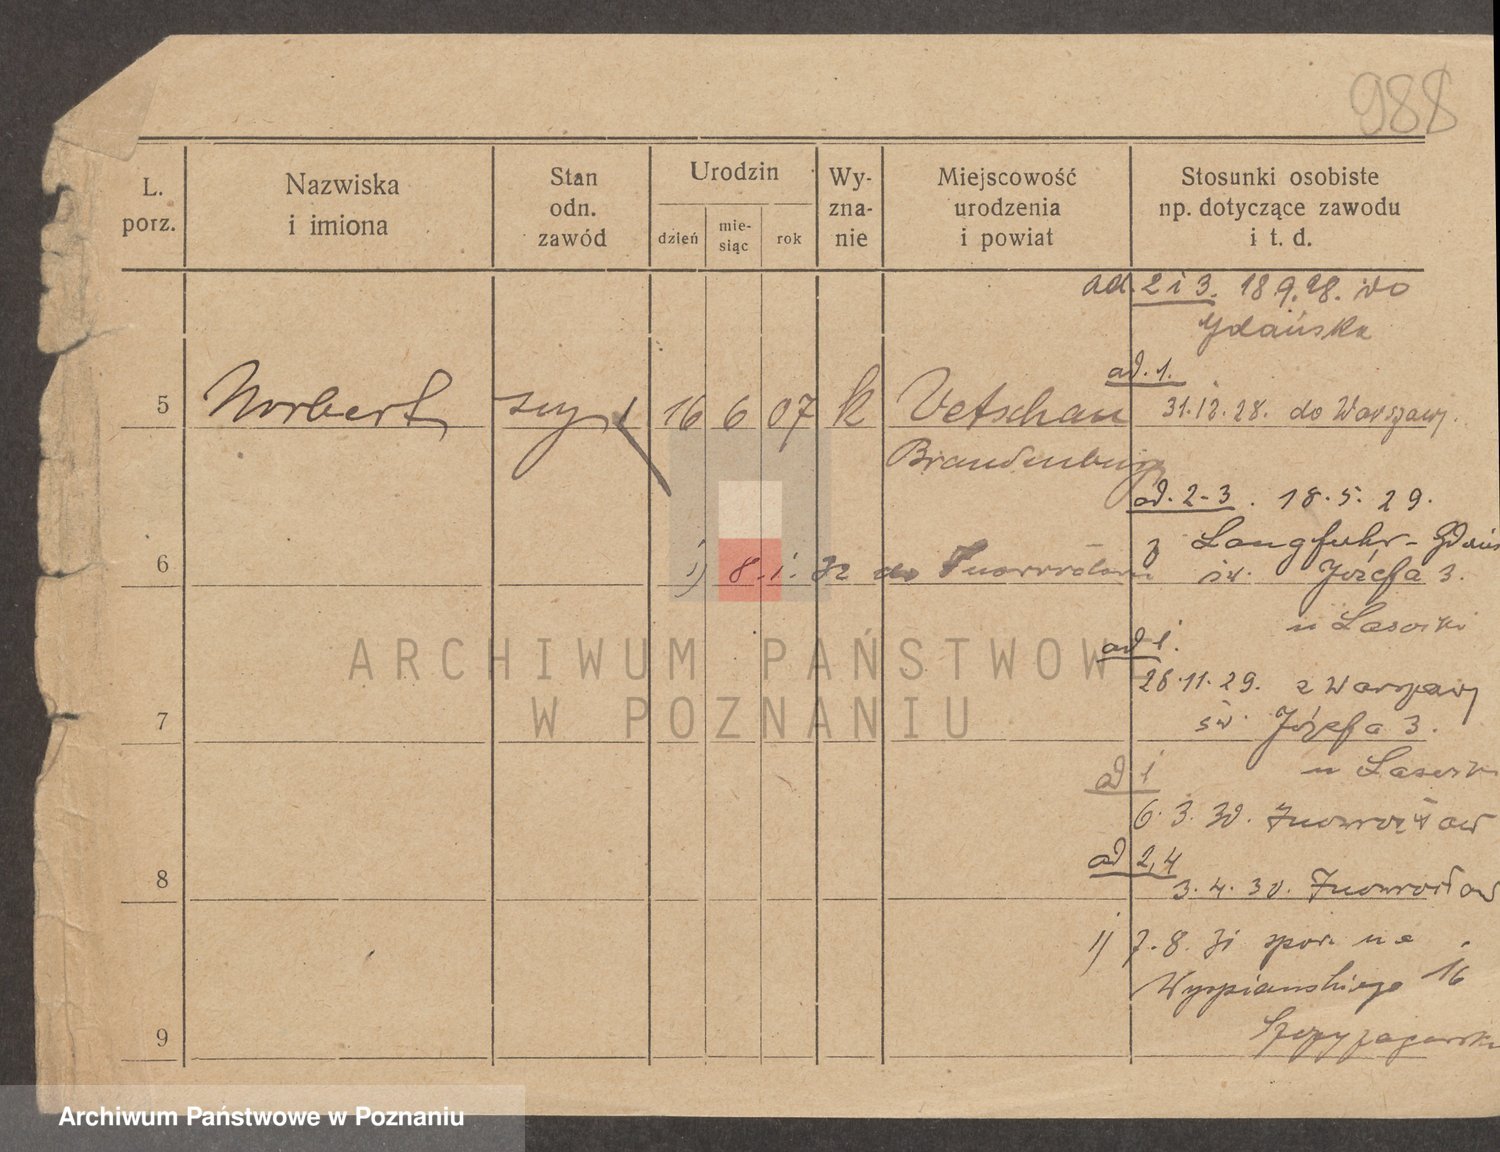 988
L. porz.
Nazwiska i imiona
Stan odn. zawód
Urodzin
dzień
mie-
siąc
rok
Wy-
zna-
nie
Miejscowość
urodzenia
i powiat
Stosunki osobiste
np. dotyczące zawodu
i t. d.
ad. 2 i 3. 18 9. 28. do
Gdańska
ad. 1.
5 Norbert syn 16 6 07 k Vetschau 31.12.28. do Warszawy.
Brandenburg
ad. 2-3. 18.5.29.
z Langfuhr-
6 1) 8.1.32 do
św. Józefa 3.
u
ad 1.
28.11.29. z Warszawy
7 św. Józefa 3.
u
ad 1
6. 3. 30. Inowrocław
ad 2,4
8 3.4.30. Inowrocław
1) 7.8.31 na
Wyspiańskiego 16
9
ARCHIWUM PAŃSTWOWE
W POZNANIU
Archiwum Państwowe w Poznaniu